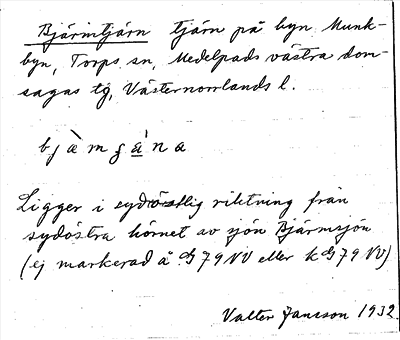 Bjärmtjärn tjärn på byn Munk-
byn, Torps sn, Medelpads västra dom-
sagas tg, Västernorrlands l.
bjὰmgána
Ligger i sydöstlig riktning från
sydöstra hörnet av sjön Bjärmsjön
(ej markerad å G 79 NV eller kG 79 NV)
Valter Jansson 1932.